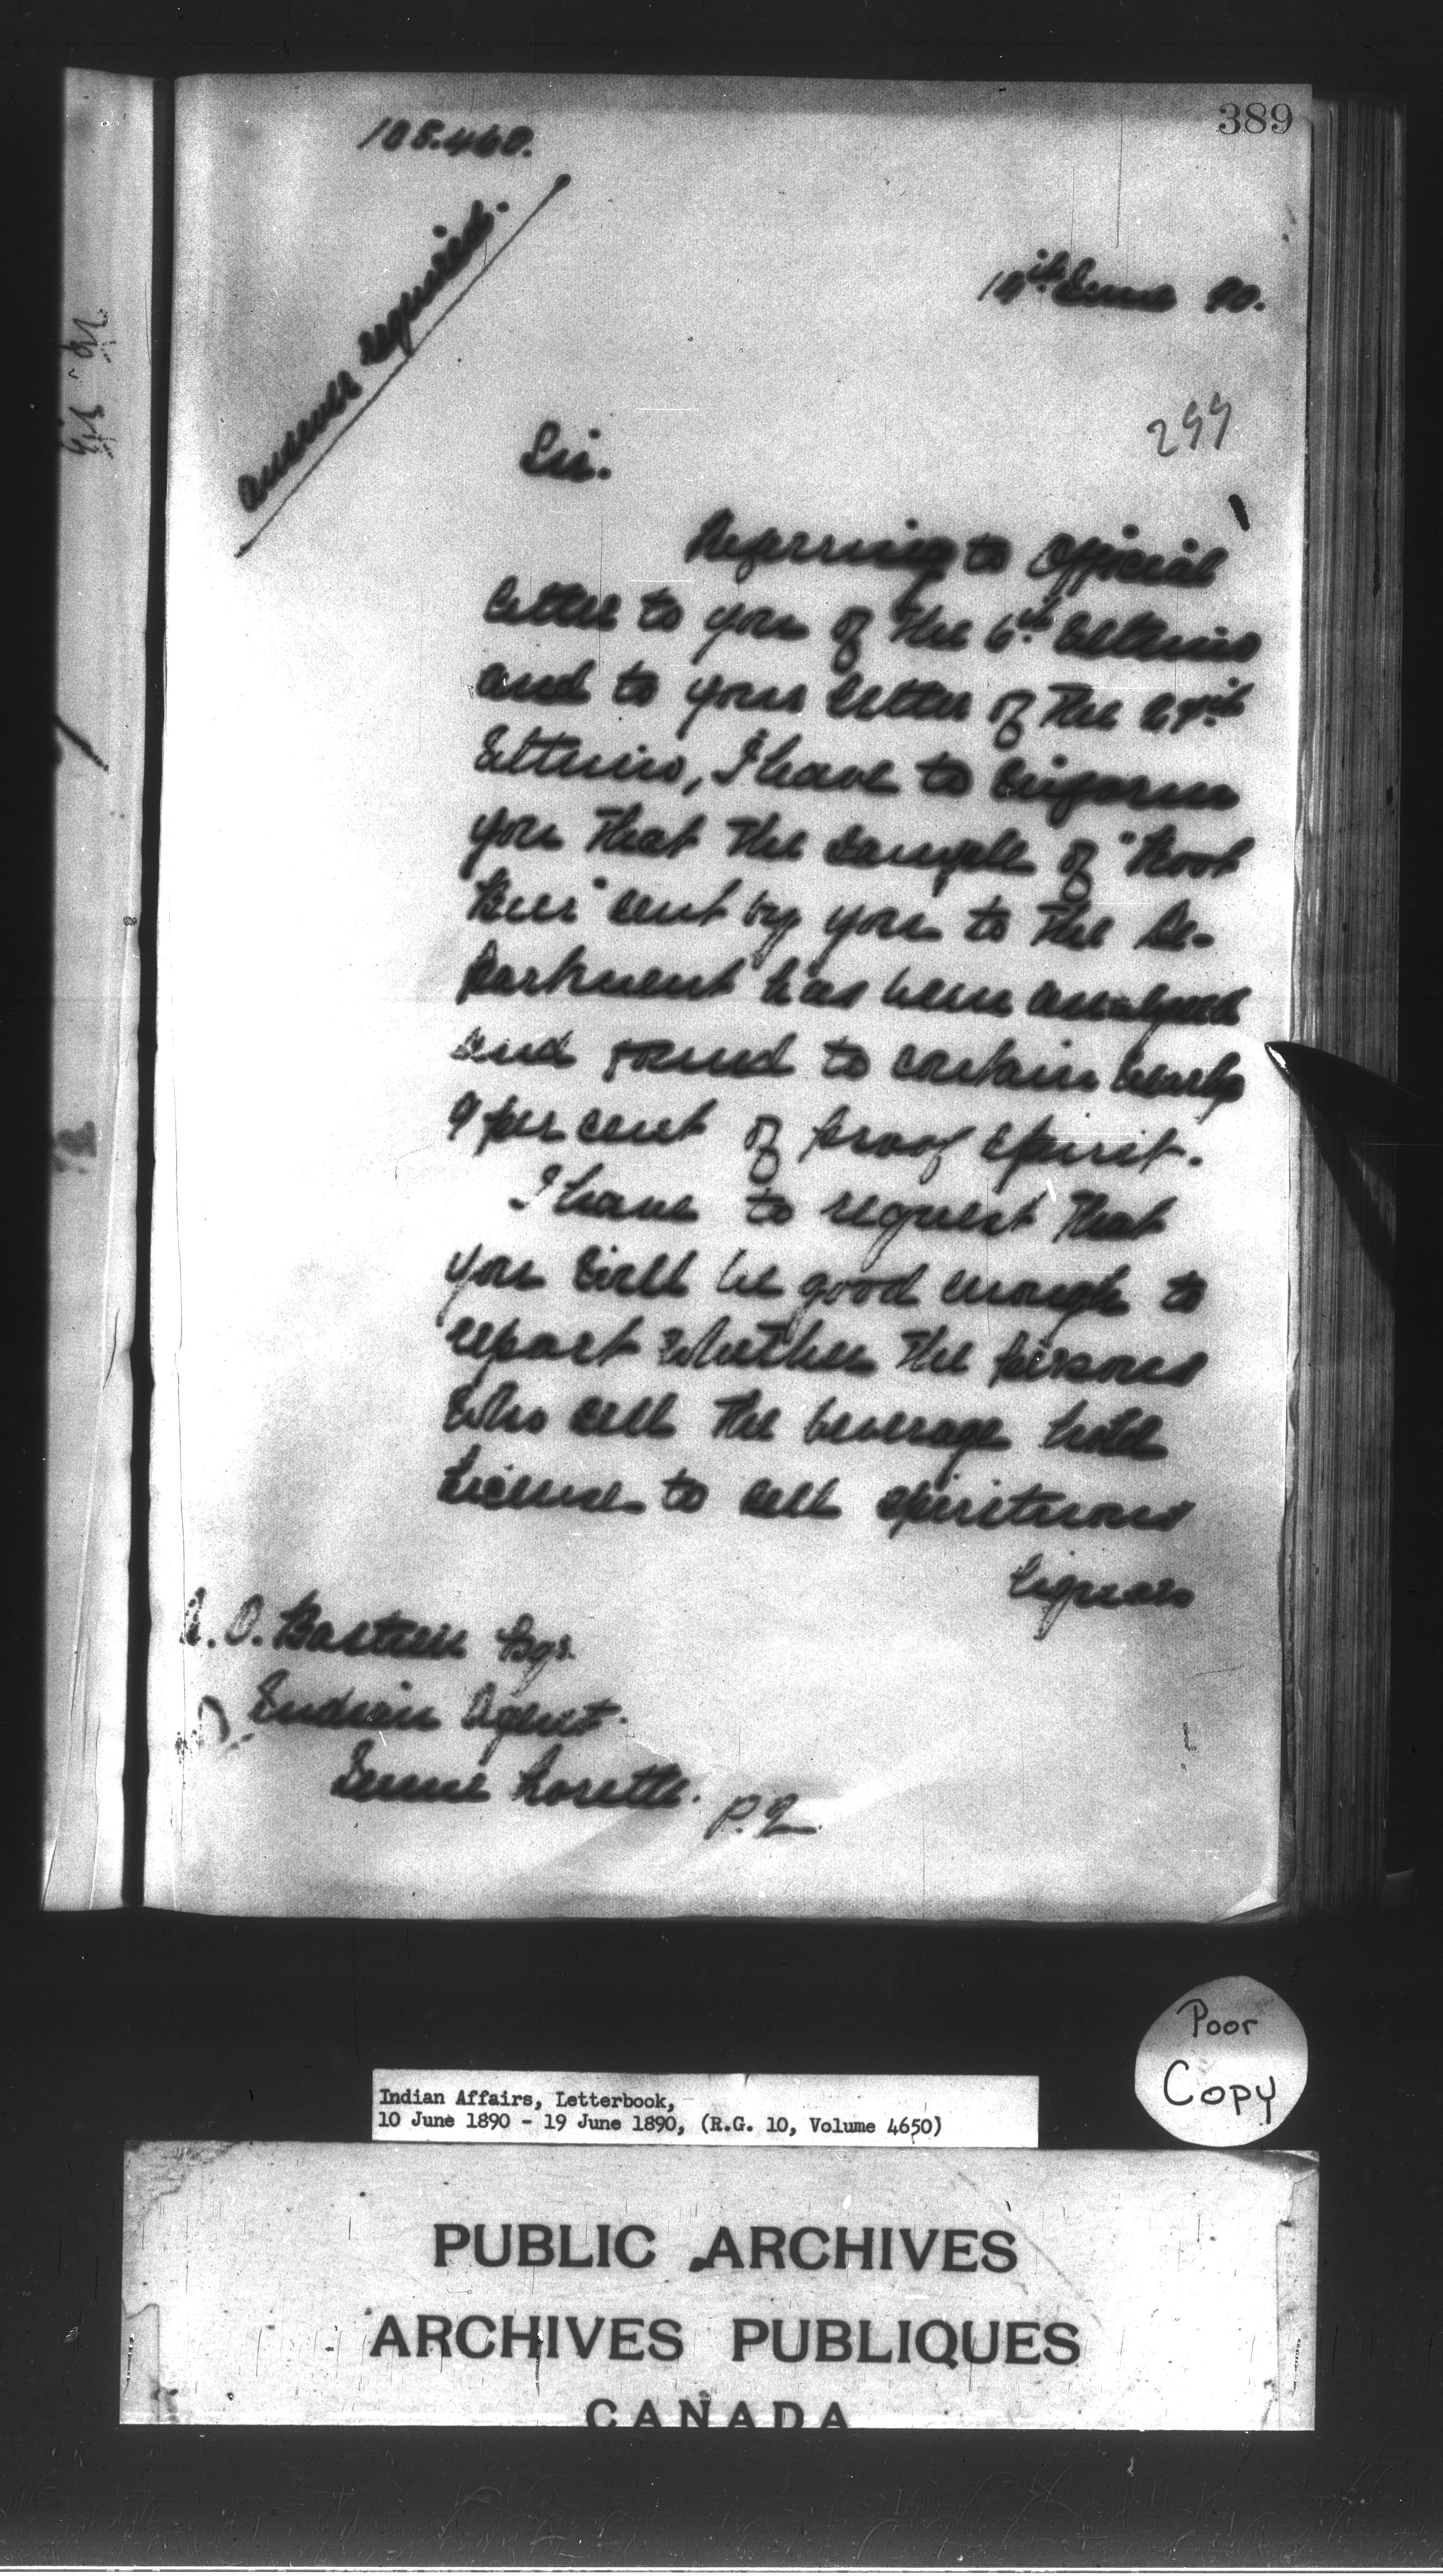 389
108.460.
answer required.
19th June 90.
299
Sir.
Referring to Official
letter to you of the 6th Ultimo
and to your letter of the 27th
Ultimo, I have to inform
you that the sample of "Root
Beer" sent by you to the De-
partment has been analysed
and found to contain nearly
9 per cent of proof spirit.
I have to request that
you will be good enough to
report whether the persons
who sell the beverage hold
license to sell spirituous
liquors
A. O. Bastien Esqr.
Indian Agent.
Jeune Lorette. P.Q.
Poor
Copy
Indian Affairs, Letterbook,
10 June 1890 - 19 June 1890, (R.G. 10, Volume 4650)
PUBLIC ARCHIVES
ARCHIVES PUBLIQUES
CANADA